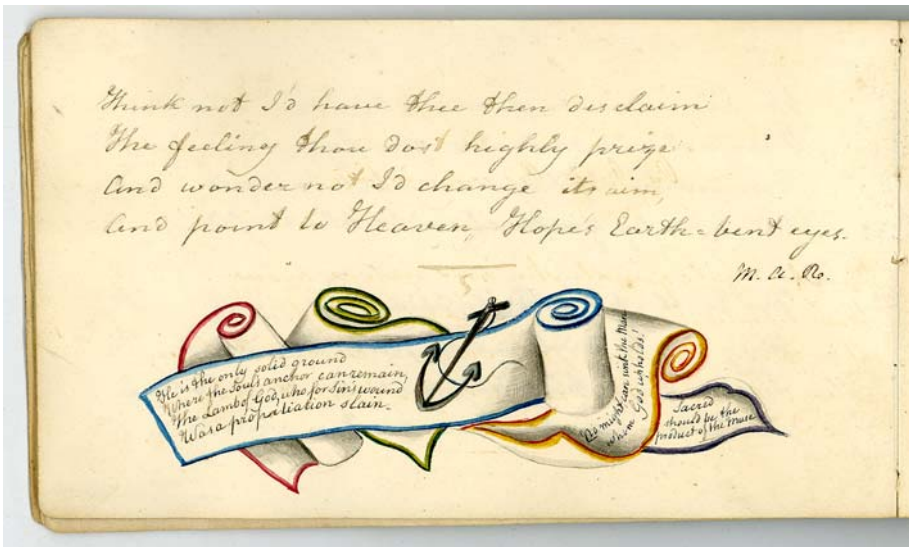 Think not I'd have thee then disclaim
The feeling thou dost highly prize
And wonder not I'd change its aim,
And point to Heaven, Hope's Earth=bent eyes.
M. A. R.
He is the only solid ground
Where the Soul's anchor can remain,
The Lamb of God, who for Sin's wound
Was a propitiation slain.
No might can sink the Man
whom God upholds!
Sacred
should be the
product of the Muse